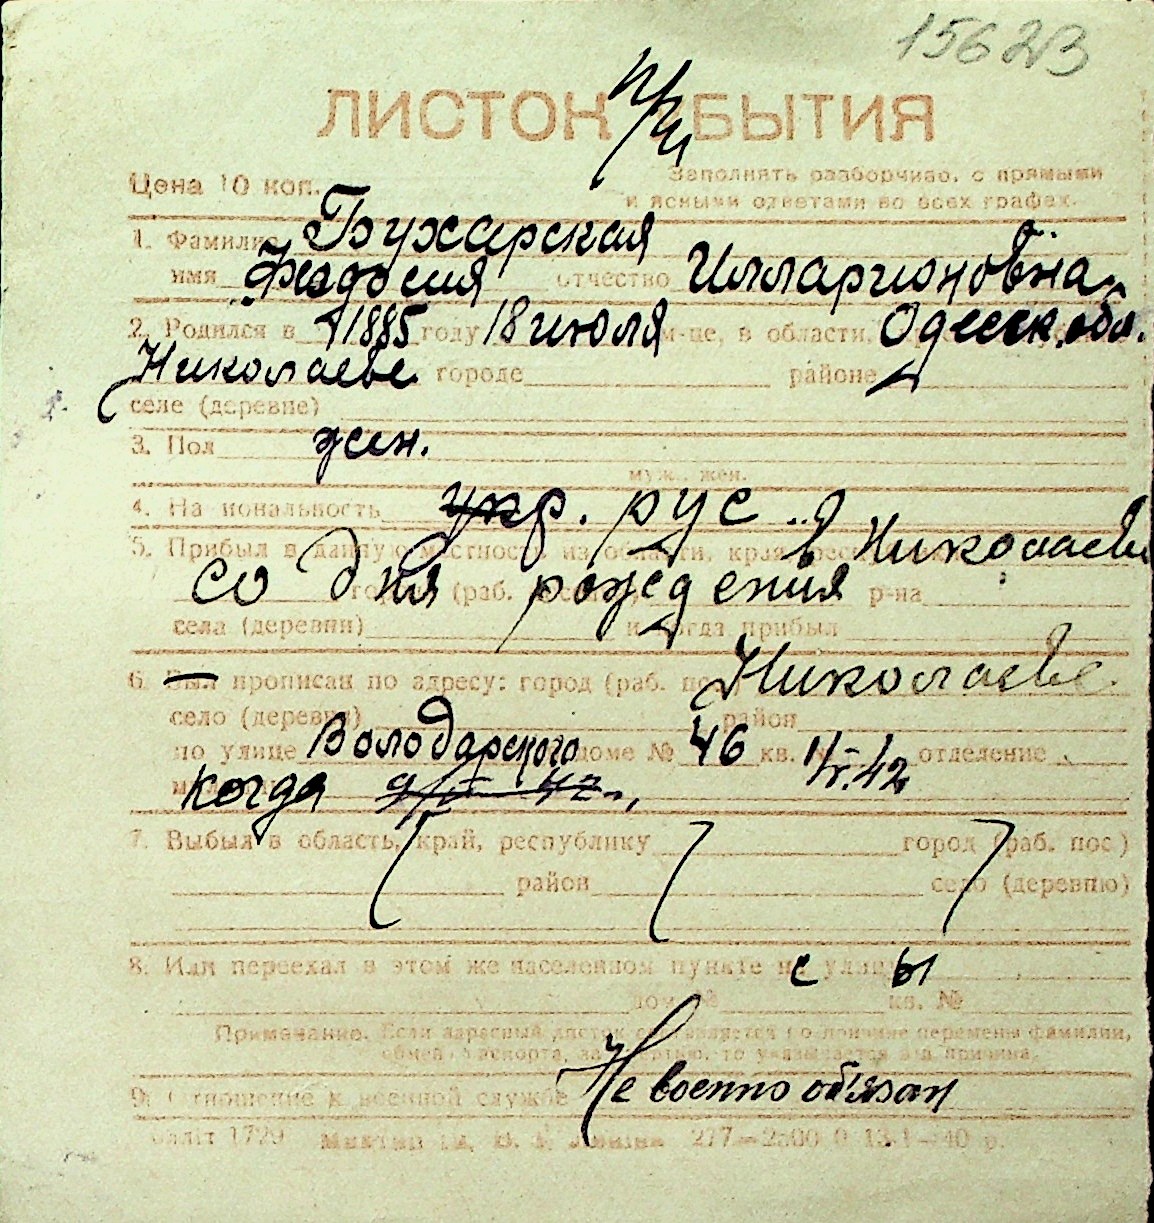 15623
ЛИСТОК ПРИБЫТИЯ
Цена 10 коп.
Заполнять разборчиво, с прямыми
и ясными ответами во всех графах.
1. Фамилия Бухарская
имя Феодосия отчество Илларионовна
2. Родился в 1885 году 18 июля м-це, в области, Одесск. обл.
Николаеве городе районе
селе (деревне)
3. Пол жен.
муж., жен.
4. Национальность укр. рус.
5. Прибыл в данную местность из области, края в Николаеве
со дня рождения р-на
села (деревни) и когда прибыл
6. Был прописан по адресу: город (раб. пос.) Николаеве
село (деревня) район
по улице Володарского доме № 46 кв. отделение
когда
7. Выбыл в область, край, республику город (раб. пос.)
район село (деревню)
8. Или переехал в этом же населенном пункте на улицу
с ы
дом № кв. №
Примечание. Если адресный листок составляется по причине перемены фамилии,
обмена паспорта, то указывается эта причина.
9. Отношение к военной службе Не военно обязан
1729